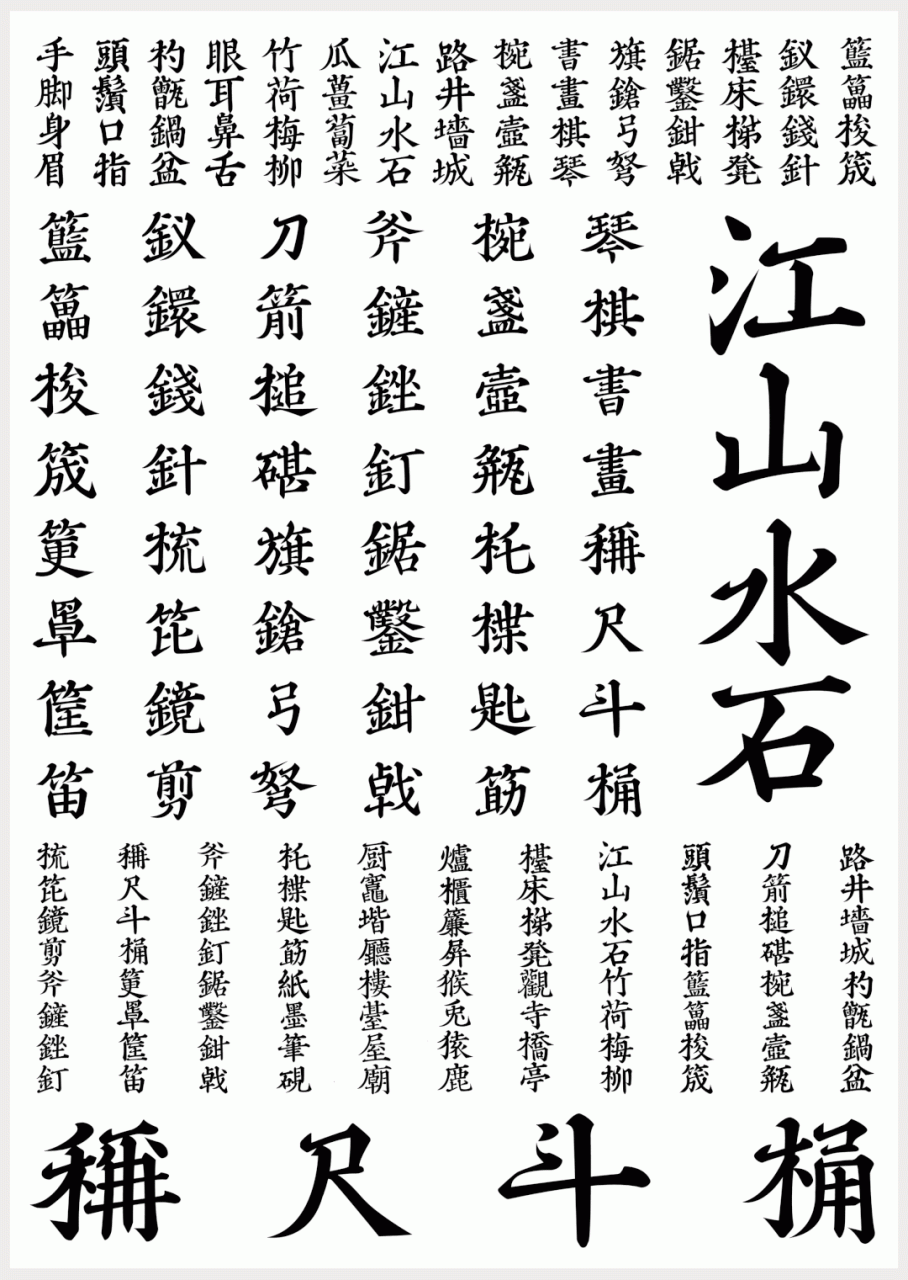 籃梭筬
釵鐶錢針
檯床梯凳
鋸鑿鉗戟
旗鎗弓弩
書畫棋琴
椀盞壼瓶
路井墻城
江山水石
瓜薑蔔菜
竹荷梅柳
眼耳鼻舌
杓甑鍋盆
頭鬚口指
手脚身眉
江山水石
琴棋書畫稱尺斗桶
椀盞壼瓶杔楪匙筯
斧鏟銼釘鋸鑿鉗戟
刀箭槌碪旗鎗弓弩
釵鐶錢針梳笓鏡剪
籃梭筬罩筐笛
路井墻城杓甑鍋盆
刀箭槌碪椀盞壼瓶
頭鬚口指籃梭筬
江山水石竹荷梅柳
檯床梯凳觀寺橋亭
爐櫃簾屏猴兎猿鹿
厨竈堦廳樓臺屋廟
杔楪匙筯紙墨筆硯
斧鏟銼釘鋸鑿鉗戟
稱尺斗桶罩筐笛
梳笓鏡剪斧鏟銼釘
稱尺斗桶